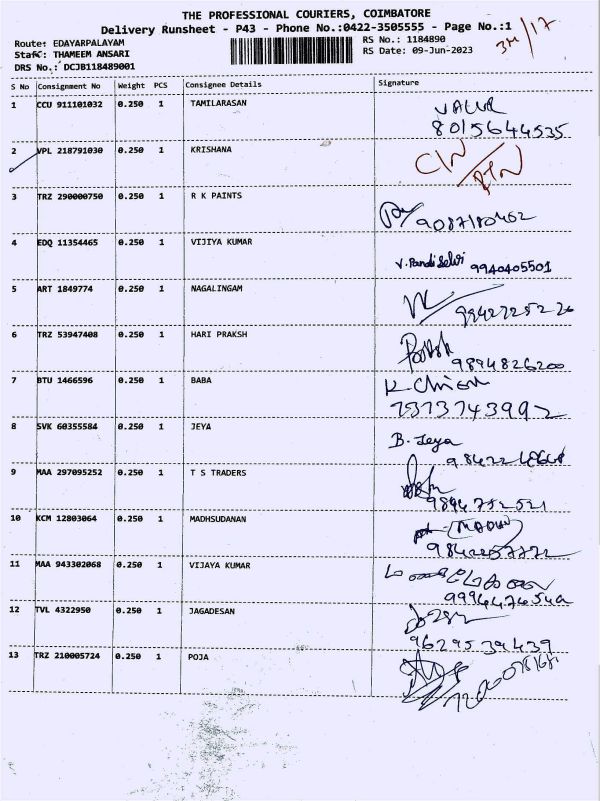 THE PROFESSIONAL COURIERS, COIMBATORE
Delivery Runsheet - P43 - Phone No.:0422-3505555 - Page No.:1
Route: EDAYARPALAYAM
RS No.: 1184890
3M/17
Staff: THAMEEM ANSARI
RS Date: 09-Jun-2023
DRS No.: DCJB118489001
S No Consignment No Weight PCS Consignee Details Signature
1 CCU 911101032 0.250 1 TAMILARASAN
8015644535
2 VPL 218791030 0.250 1 KRISHANA
3 TRZ 290000750 0.250 1 R K PAINTS
9087180462
4 EDQ 11354465 0.250 1 VIJIYA KUMAR
V. Pandi Selvi 9940405501
5 ART 1849774 0.250 1 NAGALINGAM
6 TRZ 53947408 0.250 1 HARI PRAKSH
9894826200
7 BTU 1466596 0.250 1 BABA
7373743992
8 SVK 60355584 0.250 1 JEYA
B. Jeya
9 MAA 297095252 0.250 1 T S TRADERS
9894732521
10 KCM 12803064 0.250 1 MADHSUDANAN
11 MAA 943302068 0.250 1 VIJAYA KUMAR
12 TVL 4322950 0.250 1 JAGADESAN
9629539439
13 TRZ 210005724 0.250 1 POJA